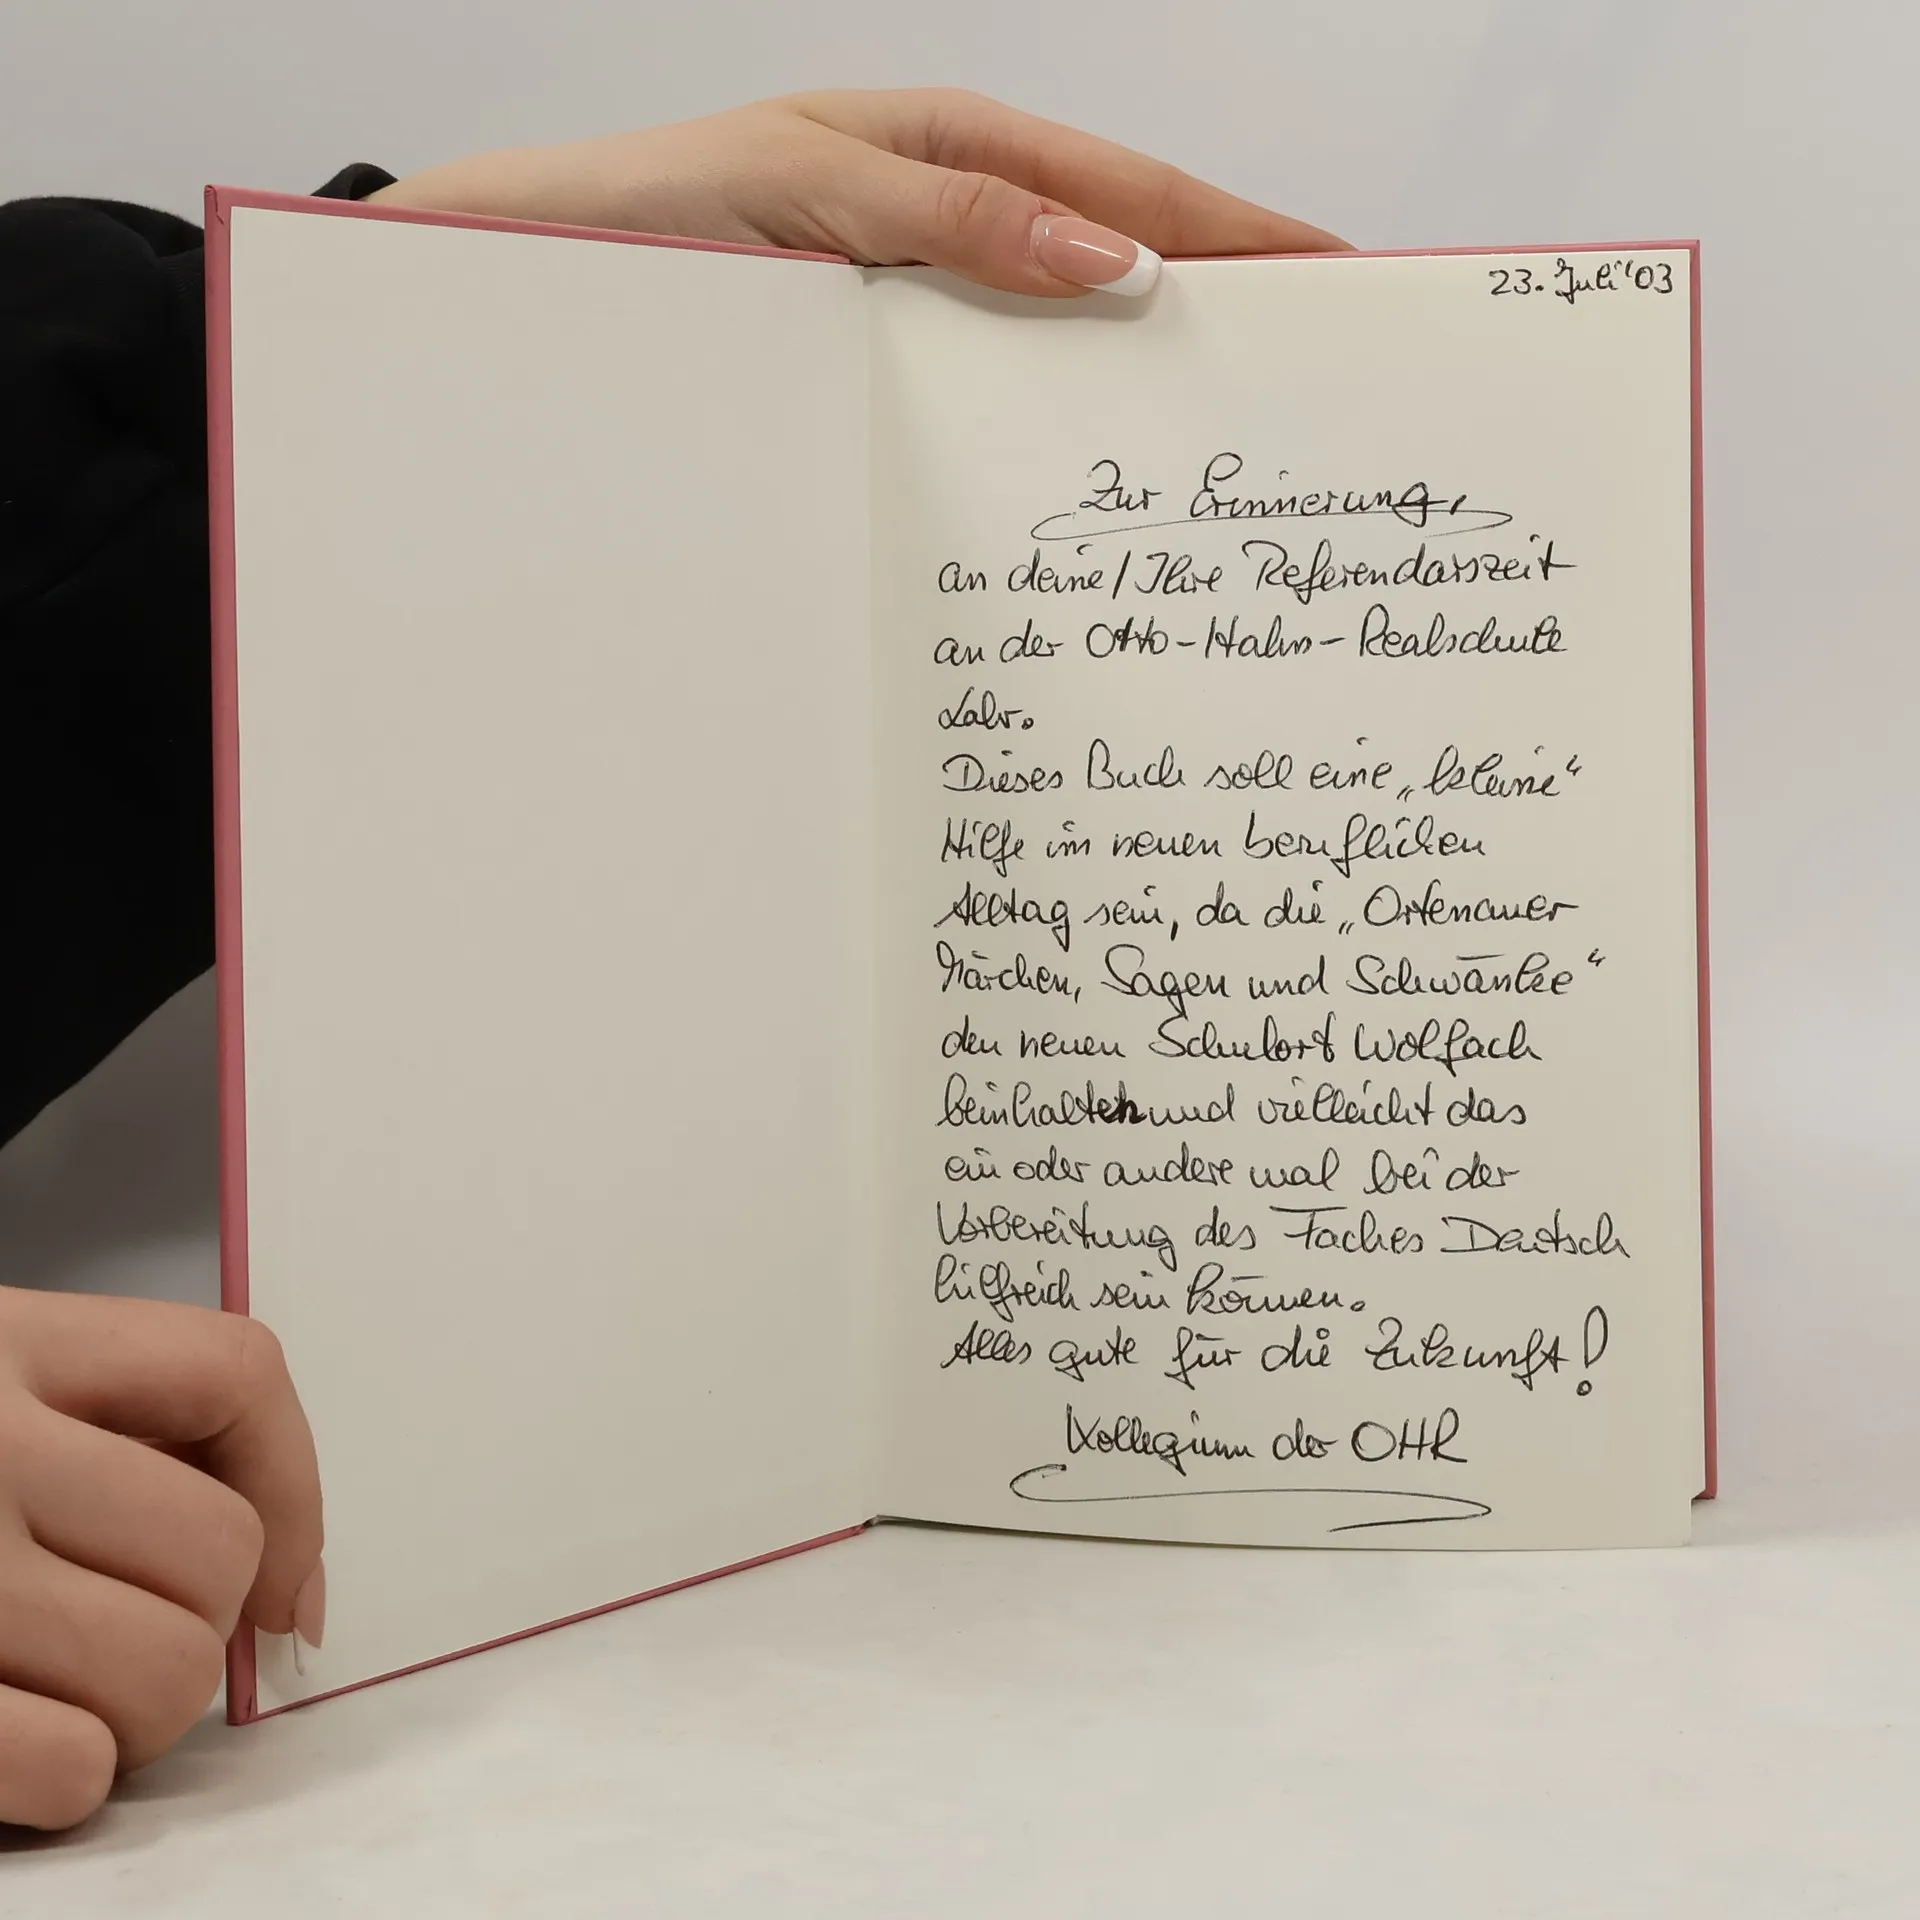 23. Juli '03
Zur Erinnerung,
an deine / Ihre Referendarszeit
an der Otto-Hahn-Realschule
Lahr.
Dieses Buch soll eine „kleine“
Hilfe im neuen beruflichen
Alltag sein, da die „Ortenauer
Märchen, Sagen und Schwänke“
den neuen Schulort Wolfach
beinhalten und vielleicht das
ein oder andere mal bei der
Vorbereitung des Faches Deutsch
hilfreich sein können.
Alles gute für die Zukunft!
Kollegium der OHR